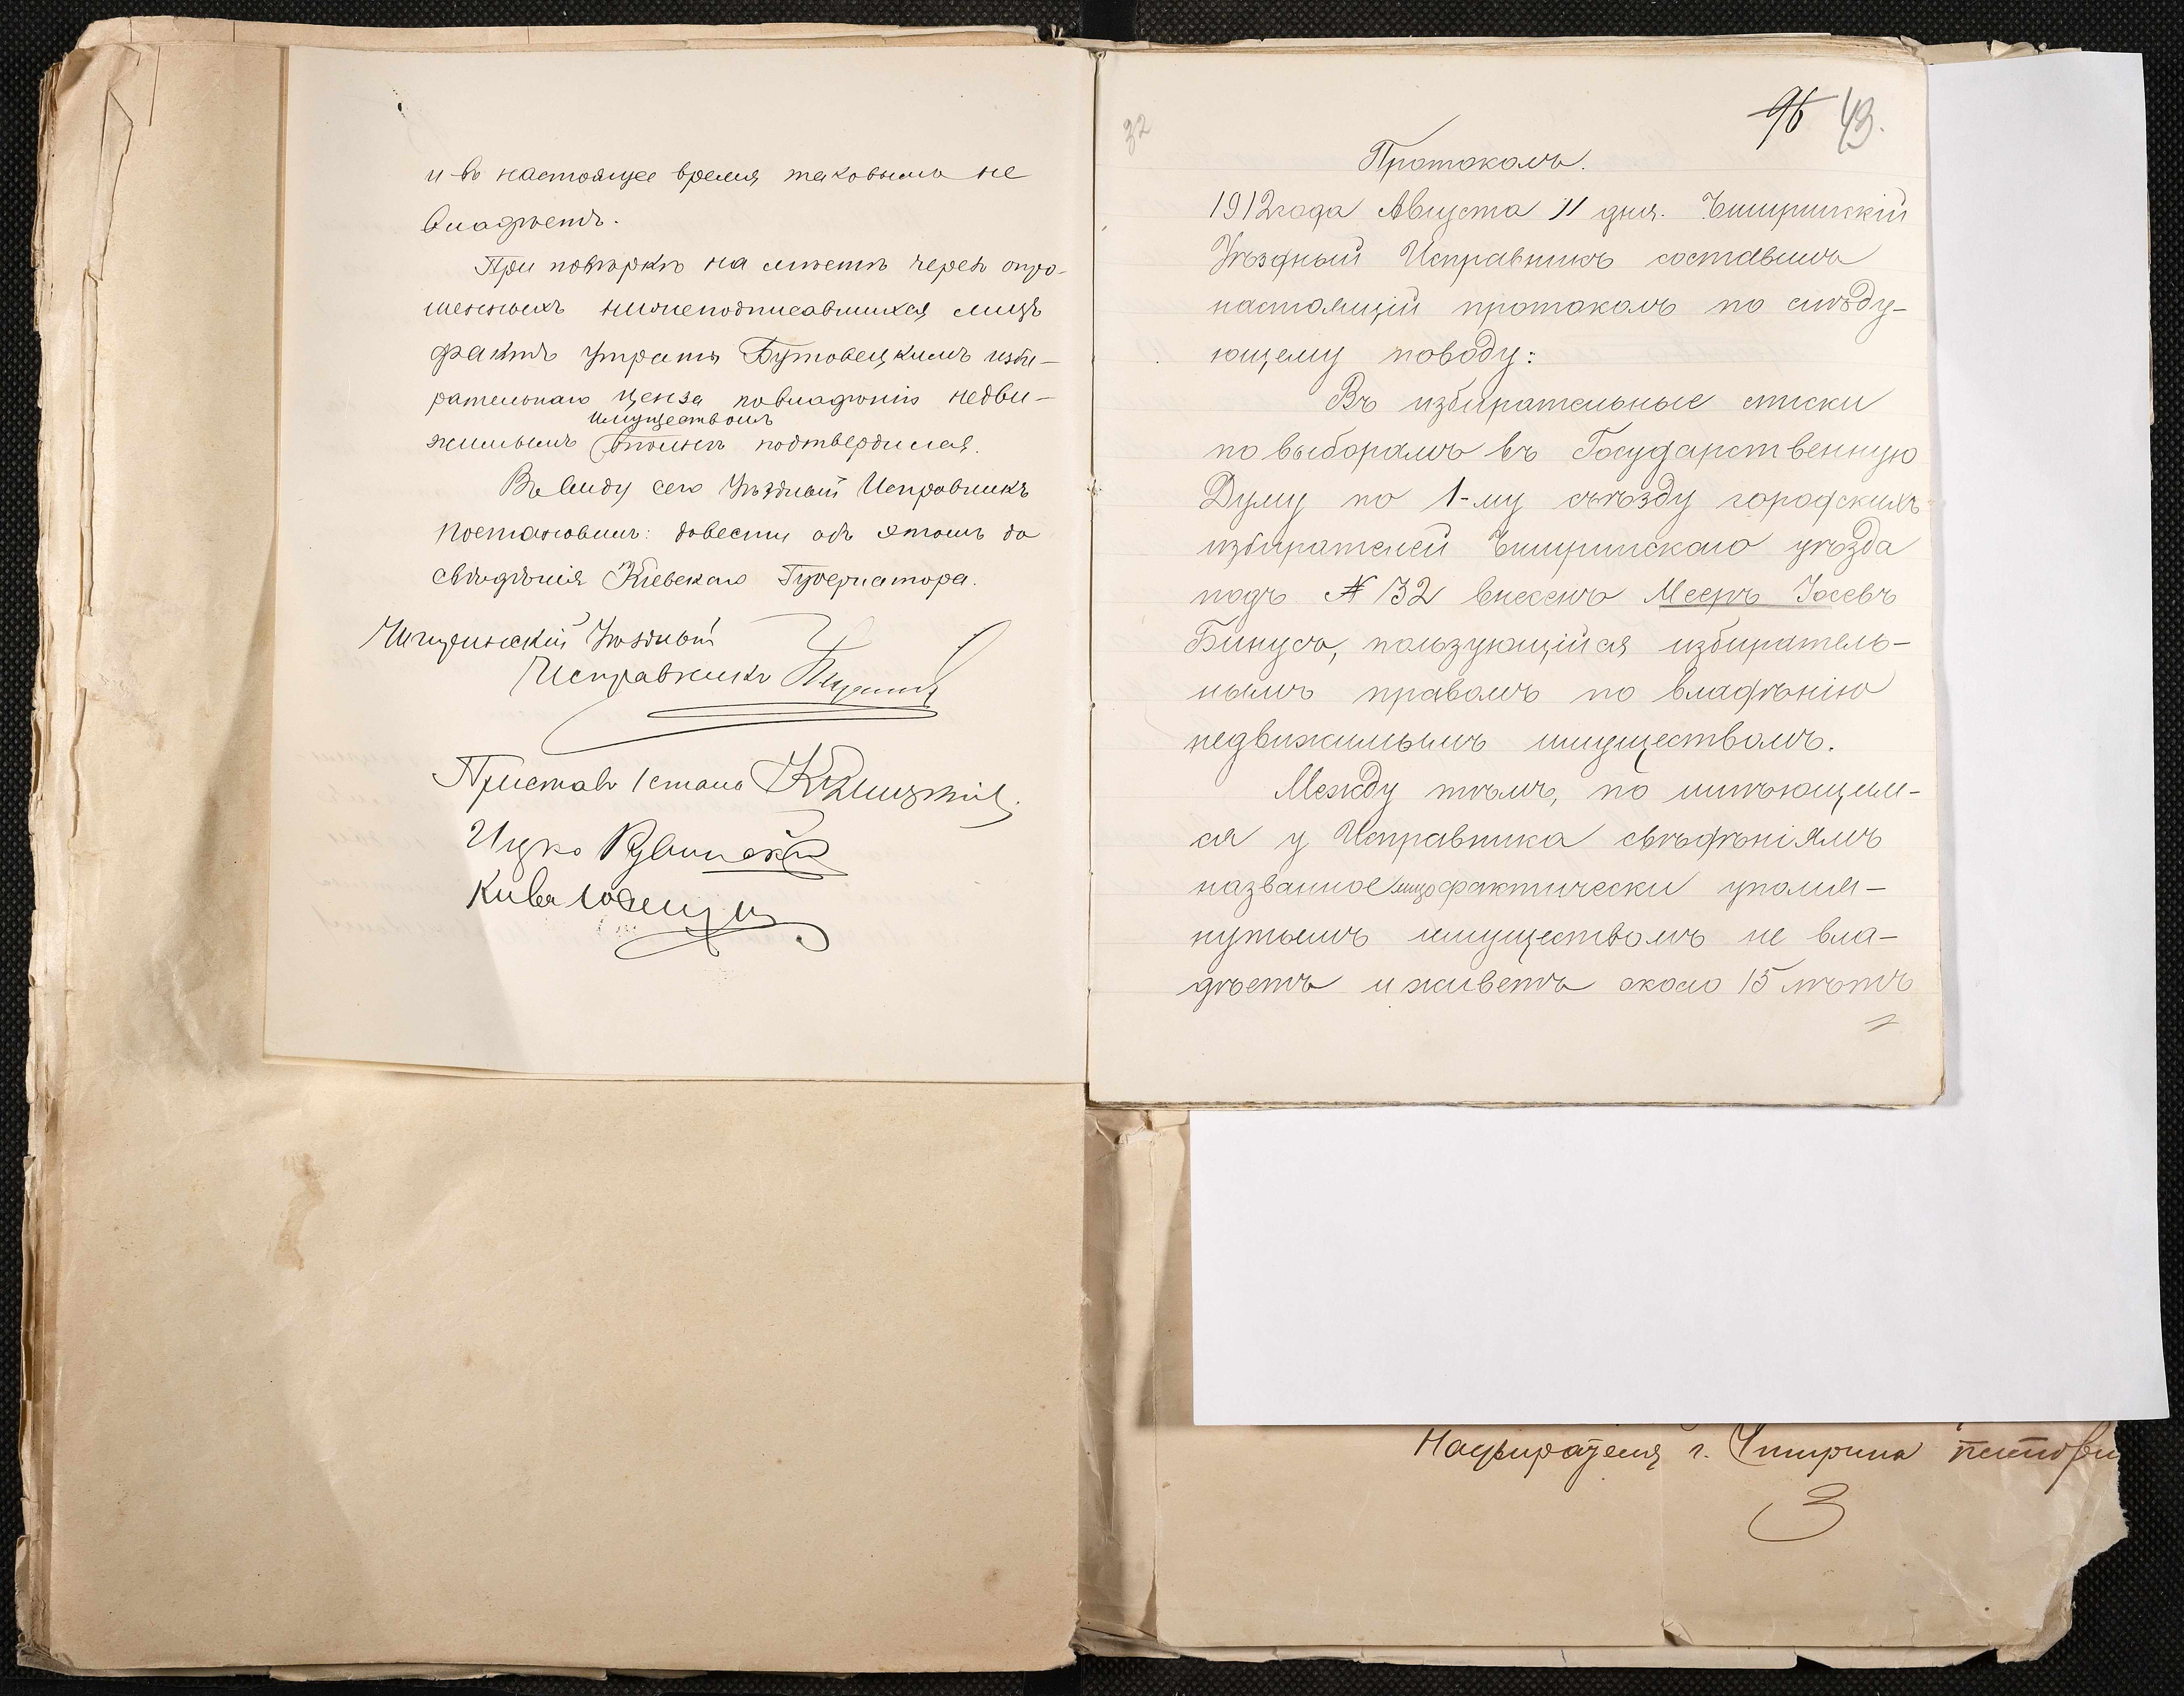 и въ настоящее время таковымъ не
владѣетъ.
При повѣркѣ на мѣстѣ черезъ опро-
шенныхъ нижеподписавшихся лицъ
фактъ утраты Бутовецкимъ изби-
рательнаго ценза по владѣнію недви-
имуществомъ
жимымъ вполнѣ подтвердился.
Въ виду сего Уѣздный Исправникъ
постановилъ: довести объ этомъ до
свѣдѣнія Кіевскаго Губернатора.
Чигиринскій Уѣздный
Исправникъ
Приставъ 1 стана
Ицко
Кива
32
96 43.
Протоколъ.
1912 года Августа 11 дня. Чигиринскій
Уѣздный Исправникъ составилъ
настоящій протоколъ по слѣду-
ющему поводу:
Въ избирательные списки
по выборамъ въ Государственную
Думу по 1-му съѣзду городскихъ
избирателей Чигиринскаго уѣзда
подъ № 132 внесенъ Мееръ Іосевъ
Бинусъ, пользующійся избиратель-
нымъ правомъ по владѣнію
недвижимымъ имуществомъ.
Между тѣмъ, по имѣющим-
ся у Исправника свѣдѣніямъ
названное лицо фактически упомя-
нутымъ имуществомъ не вла-
дѣетъ и живетъ около 15 лѣтъ
Надзирателя г. Чигирина
3